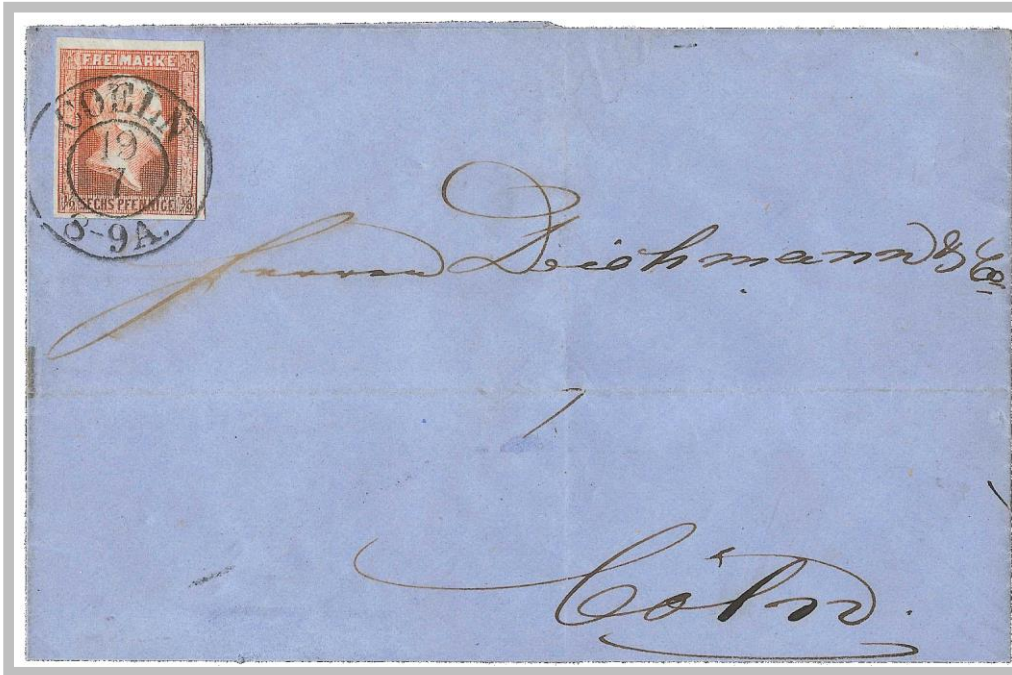 FREIMARKE
COELN
19
7
½ SECHS PFENNIGE ½
8-9A.
Herrn Deichmann & Co
Cöln.